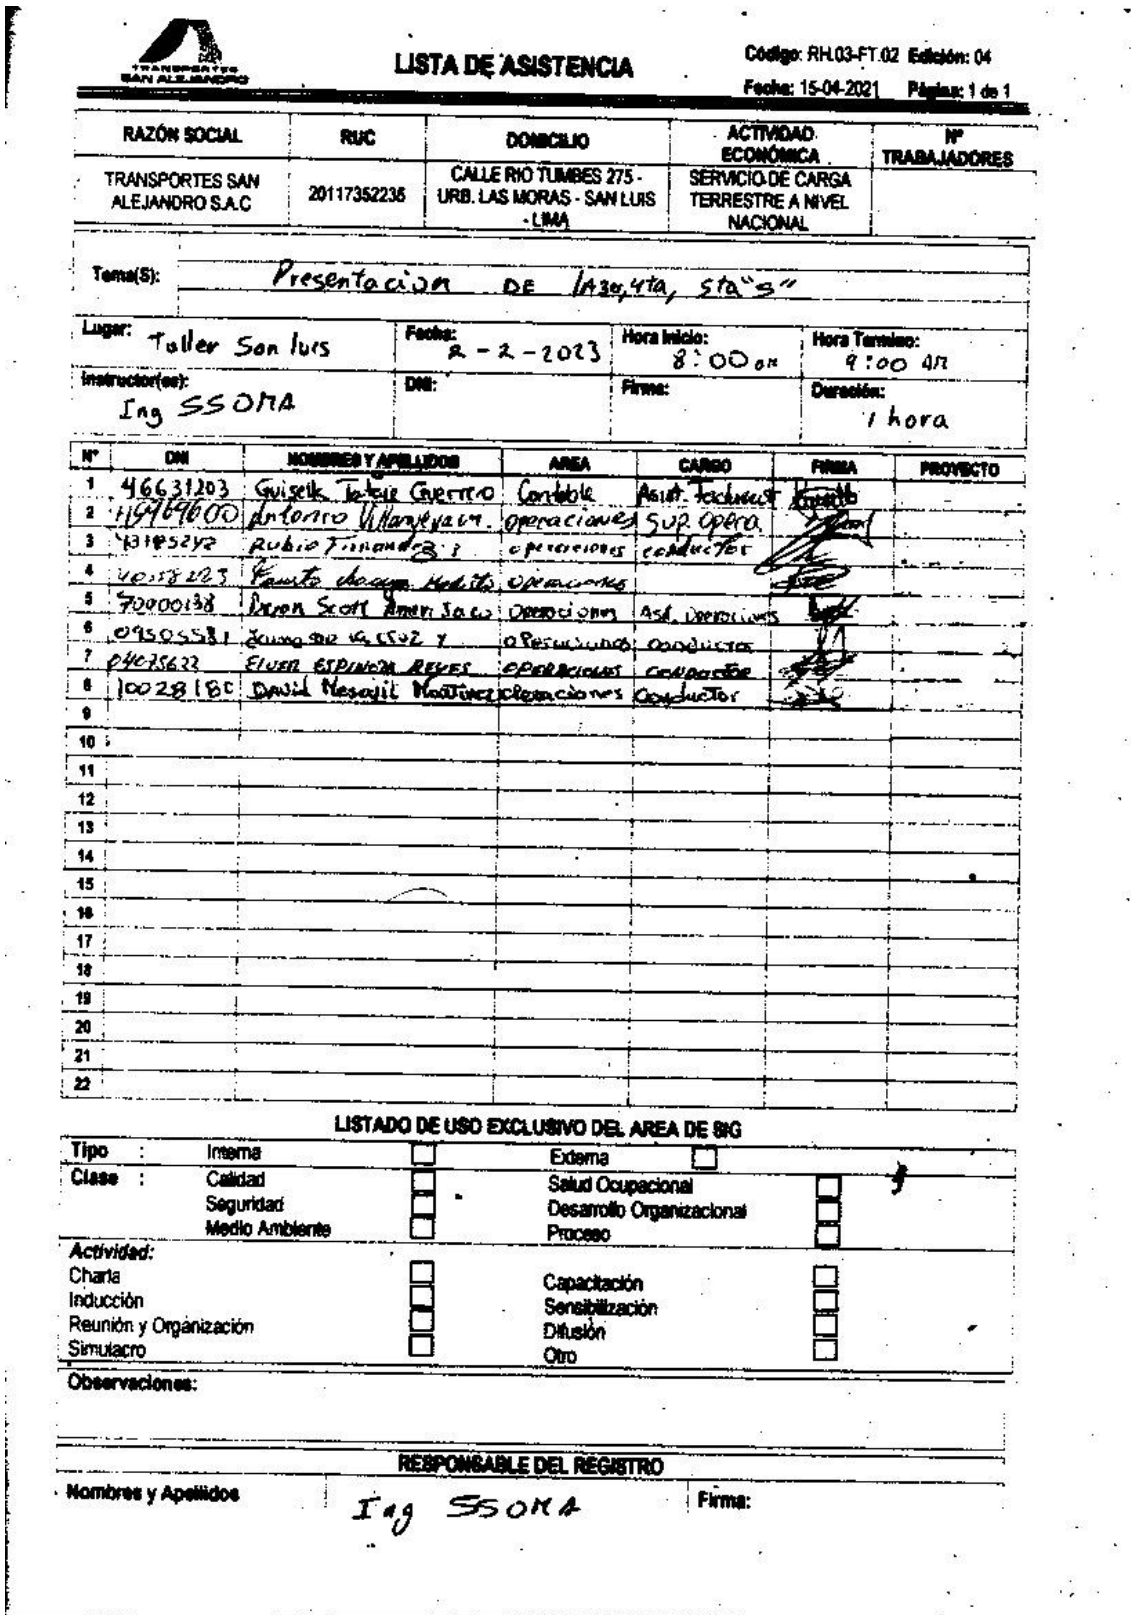 TRANSPORTES
SAN ALEJANDRO
LISTA DE ASISTENCIA
Código: RH.03-FT.02 Edición: 04
Fecha: 15-04-2021 Página: 1 de 1
RAZÓN SOCIAL RUC DOMICILIO ACTIVIDAD ECONÓMICA N° TRABAJADORES
TRANSPORTES SAN ALEJANDRO S.A.C 20117352235 CALLE RIO TUMBES 275 - URB. LAS MORAS - SAN LUIS - LIMA SERVICIO DE CARGA TERRESTRE A NIVEL NACIONAL
Tema(S): Presentacion DE 1A 3er, 4ta, 5ta "S"
Lugar: Taller San luis Fecha: 2-2-2023 Hora Inicio: 8:00 am Hora Termino: 9:00 AM
Instructor(es): Ing SSOMA DNI: Firma: Duración: 1 hora
N° DNI NOMBRES Y APELLIDOS AREA CARGO FIRMA PROYECTO
1 46631203 Guiselle Guerrero Contable Asist.
2 Antonio operaciones Sup. opera
3 43185242 Rubio operaciones conductor
4 Fausto operaciones
5 70900138 Scott operaciones Asd. operaciones
6 09505581 cruz operaciones conductor
7 04075622 ELVER ESPINOZA REYES OPERACIONES CONDUCTOR
8 1002818 David Mesajil Martinez operaciones Conductor
9
10
11
12
13
14
15
16
17
18
19
20
21
22
LISTADO DE USO EXCLUSIVO DEL AREA DE SIG
Tipo : Interna Externa
Clase : Calidad Salud Ocupacional
Seguridad Desarrollo Organizacional
Medio Ambiente Proceso
Actividad:
Charla Capacitación
Inducción Sensibilización
Reunión y Organización Difusión
Simulacro Otro
Observaciones:
RESPONSABLE DEL REGISTRO
Nombres y Apellidos Ing SSOMA Firma: